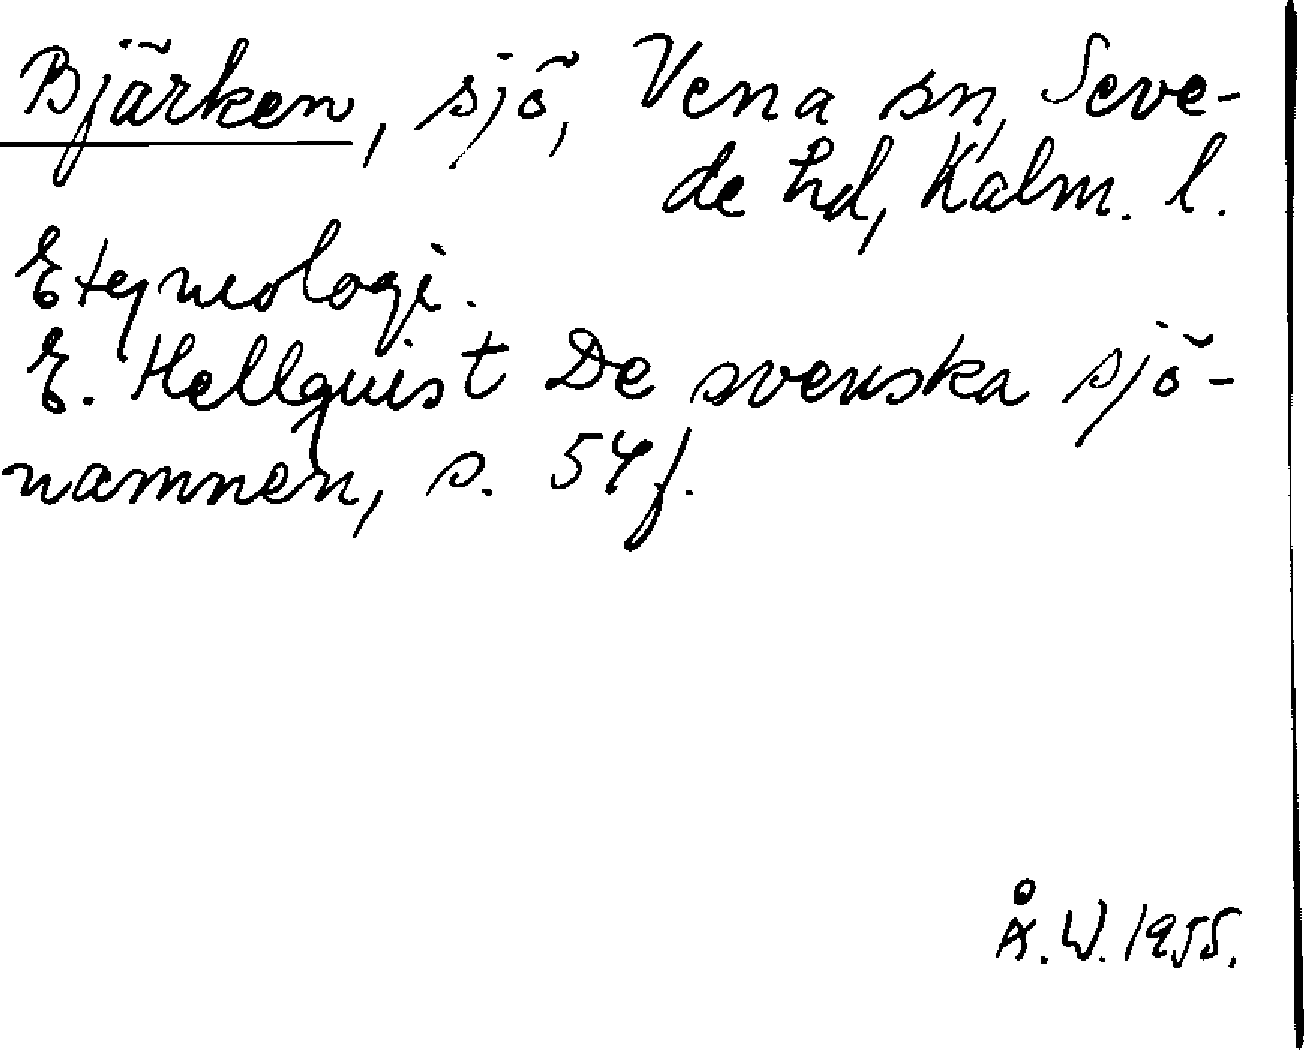 Bjärken, sjö, Vena sn, Seve-
de hd, Kalm. l.
Etymologi.
E. Hellquist De svenska sjö-
namnen, s. 54 f.
Å. W. 1955.